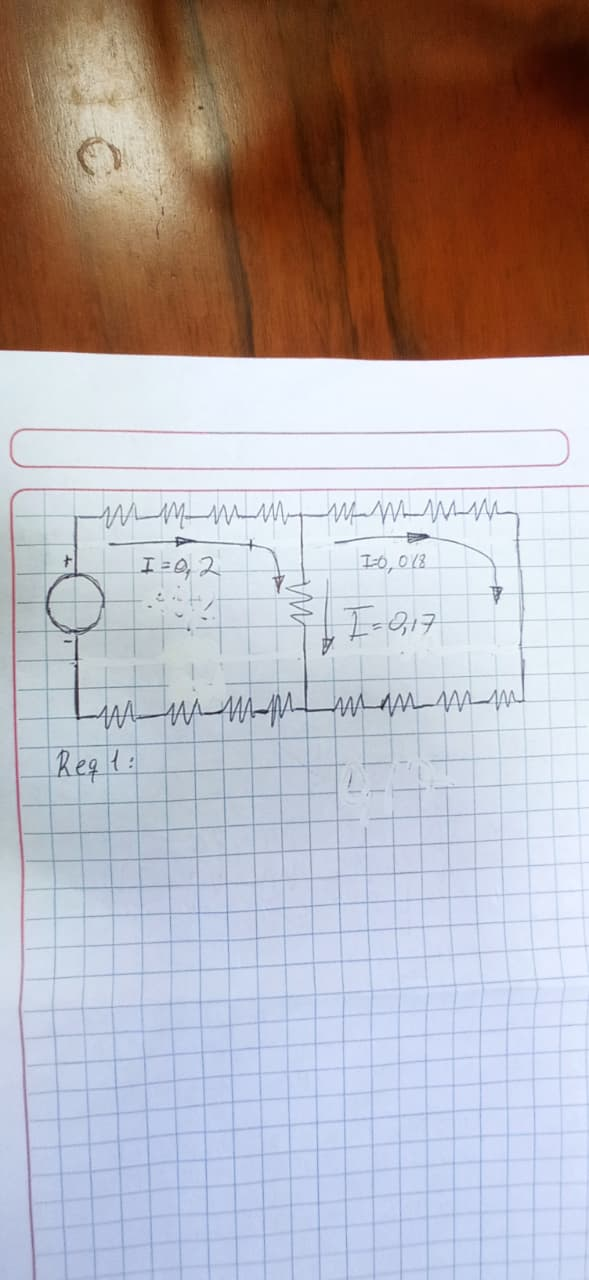 +
I=0,2
I=0,018
I=0,17
-
Req 1: